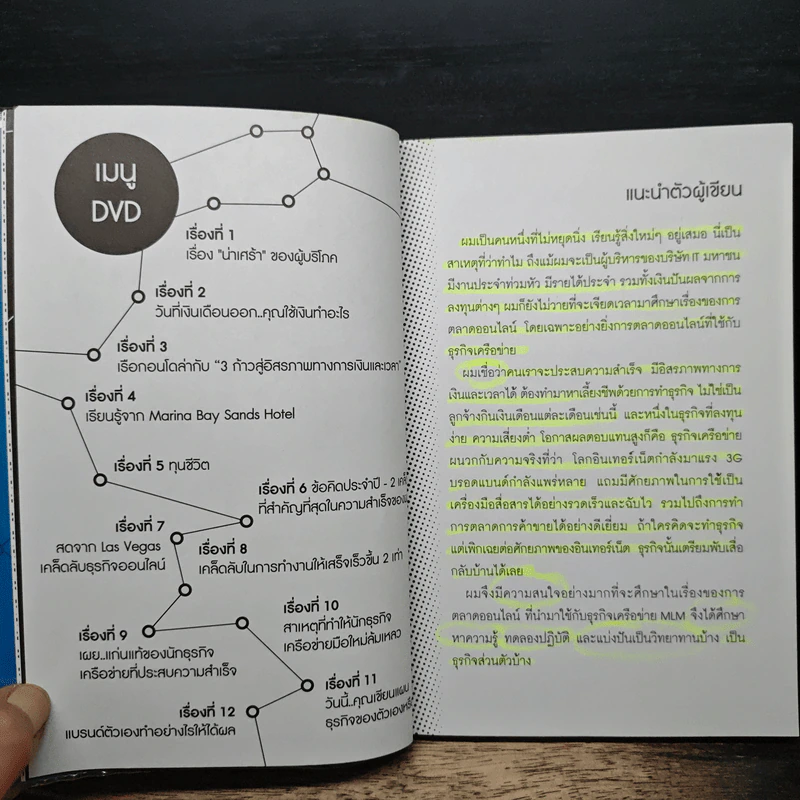 เมนู
DVD
เรื่องที่ 1
เรื่อง "น่าเศร้า" ของผู้บริโภค
เรื่องที่ 2
วันที่เงินเดือนออก..คุณใช้เงินทำอะไร
เรื่องที่ 3
เรือกอนโดล่ากับ "3 ก้าวสู่อิสรภาพทางการเงินและเวลา"
เรื่องที่ 4
เรียนรู้จาก Marina Bay Sands Hotel
เรื่องที่ 5 ทุนชีวิต
เรื่องที่ 6 ข้อคิดประจำปี - 2
ที่สำคัญที่สุดในความสำเร็จของ
เรื่องที่ 7
สดจาก Las Vegas
เคล็ดลับธุรกิจออนไลน์
เรื่องที่ 8
เคล็ดลับในการทำงานให้เสร็จเร็วขึ้น 2 เท่า
เรื่องที่ 9
เผย..แก่นแท้ของนักธุรกิจ
เครือข่ายที่ประสบความสำเร็จ
เรื่องที่ 10
สาเหตุที่ทำให้นักธุรกิจ
เครือข่ายมือใหม่ล้มเหลว
เรื่องที่ 11
วันนี้..คุณเขียนแผน
ธุรกิจของตัวเอง
เรื่องที่ 12
แบรนด์ตัวเองทำอย่างไรให้ได้ผล
แนะนำตัวผู้เขียน
ผมเป็นคนหนึ่งที่ไม่หยุดนิ่ง เรียนรู้สิ่งใหม่ๆ อยู่เสมอ นี่เป็น
สาเหตุที่ว่าทำไม ถึงแม้ผมจะเป็นผู้บริหารของบริษัท IT มหาชน
มีงานประจำท่วมหัว มีรายได้ประจำ รวมทั้งเงินปันผลจากการ
ลงทุนต่างๆ ผมก็ยังไม่วายที่จะเจียดเวลามาศึกษาเรื่องของการ
ตลาดออนไลน์ โดยเฉพาะอย่างยิ่งการตลาดออนไลน์ที่ใช้กับ
ธุรกิจเครือข่าย
ผมเชื่อว่าคนเราจะประสบความสำเร็จ มีอิสรภาพทางการ
เงินและเวลาได้ ต้องทำมาหาเลี้ยงชีพด้วยการทำธุรกิจ ไม่ใช่เป็น
ลูกจ้างกินเงินเดือนแต่ละเดือนเช่นนี้ และหนึ่งในธุรกิจที่ลงทุน
ง่าย ความเสี่ยงต่ำ โอกาสผลตอบแทนสูงก็คือ ธุรกิจเครือข่าย
ผนวกกับความจริงที่ว่า โลกอินเทอร์เน็ตกำลังมาแรง 3G
บรอดแบนด์กำลังแพร่หลาย แถมมีศักยภาพในการใช้เป็น
เครื่องมือสื่อสารได้อย่างรวดเร็วและฉับไว รวมไปถึงการทำ
การตลาดการค้าขายได้อย่างดีเยี่ยม ถ้าใครคิดจะทำธุรกิจ
แต่เพิกเฉยต่อศักยภาพของอินเทอร์เน็ต ธุรกิจนั้นเตรียมพับเสื่อ
กลับบ้านได้เลย
ผมจึงมีความสนใจอย่างมากที่จะศึกษาในเรื่องของการ
ตลาดออนไลน์ ที่นำมาใช้กับธุรกิจเครือข่าย MLM จึงได้ศึกษา
หาความรู้ ทดลองปฏิบัติ และแบ่งปันเป็นวิทยาทานบ้าง เป็น
ธุรกิจส่วนตัวบ้าง